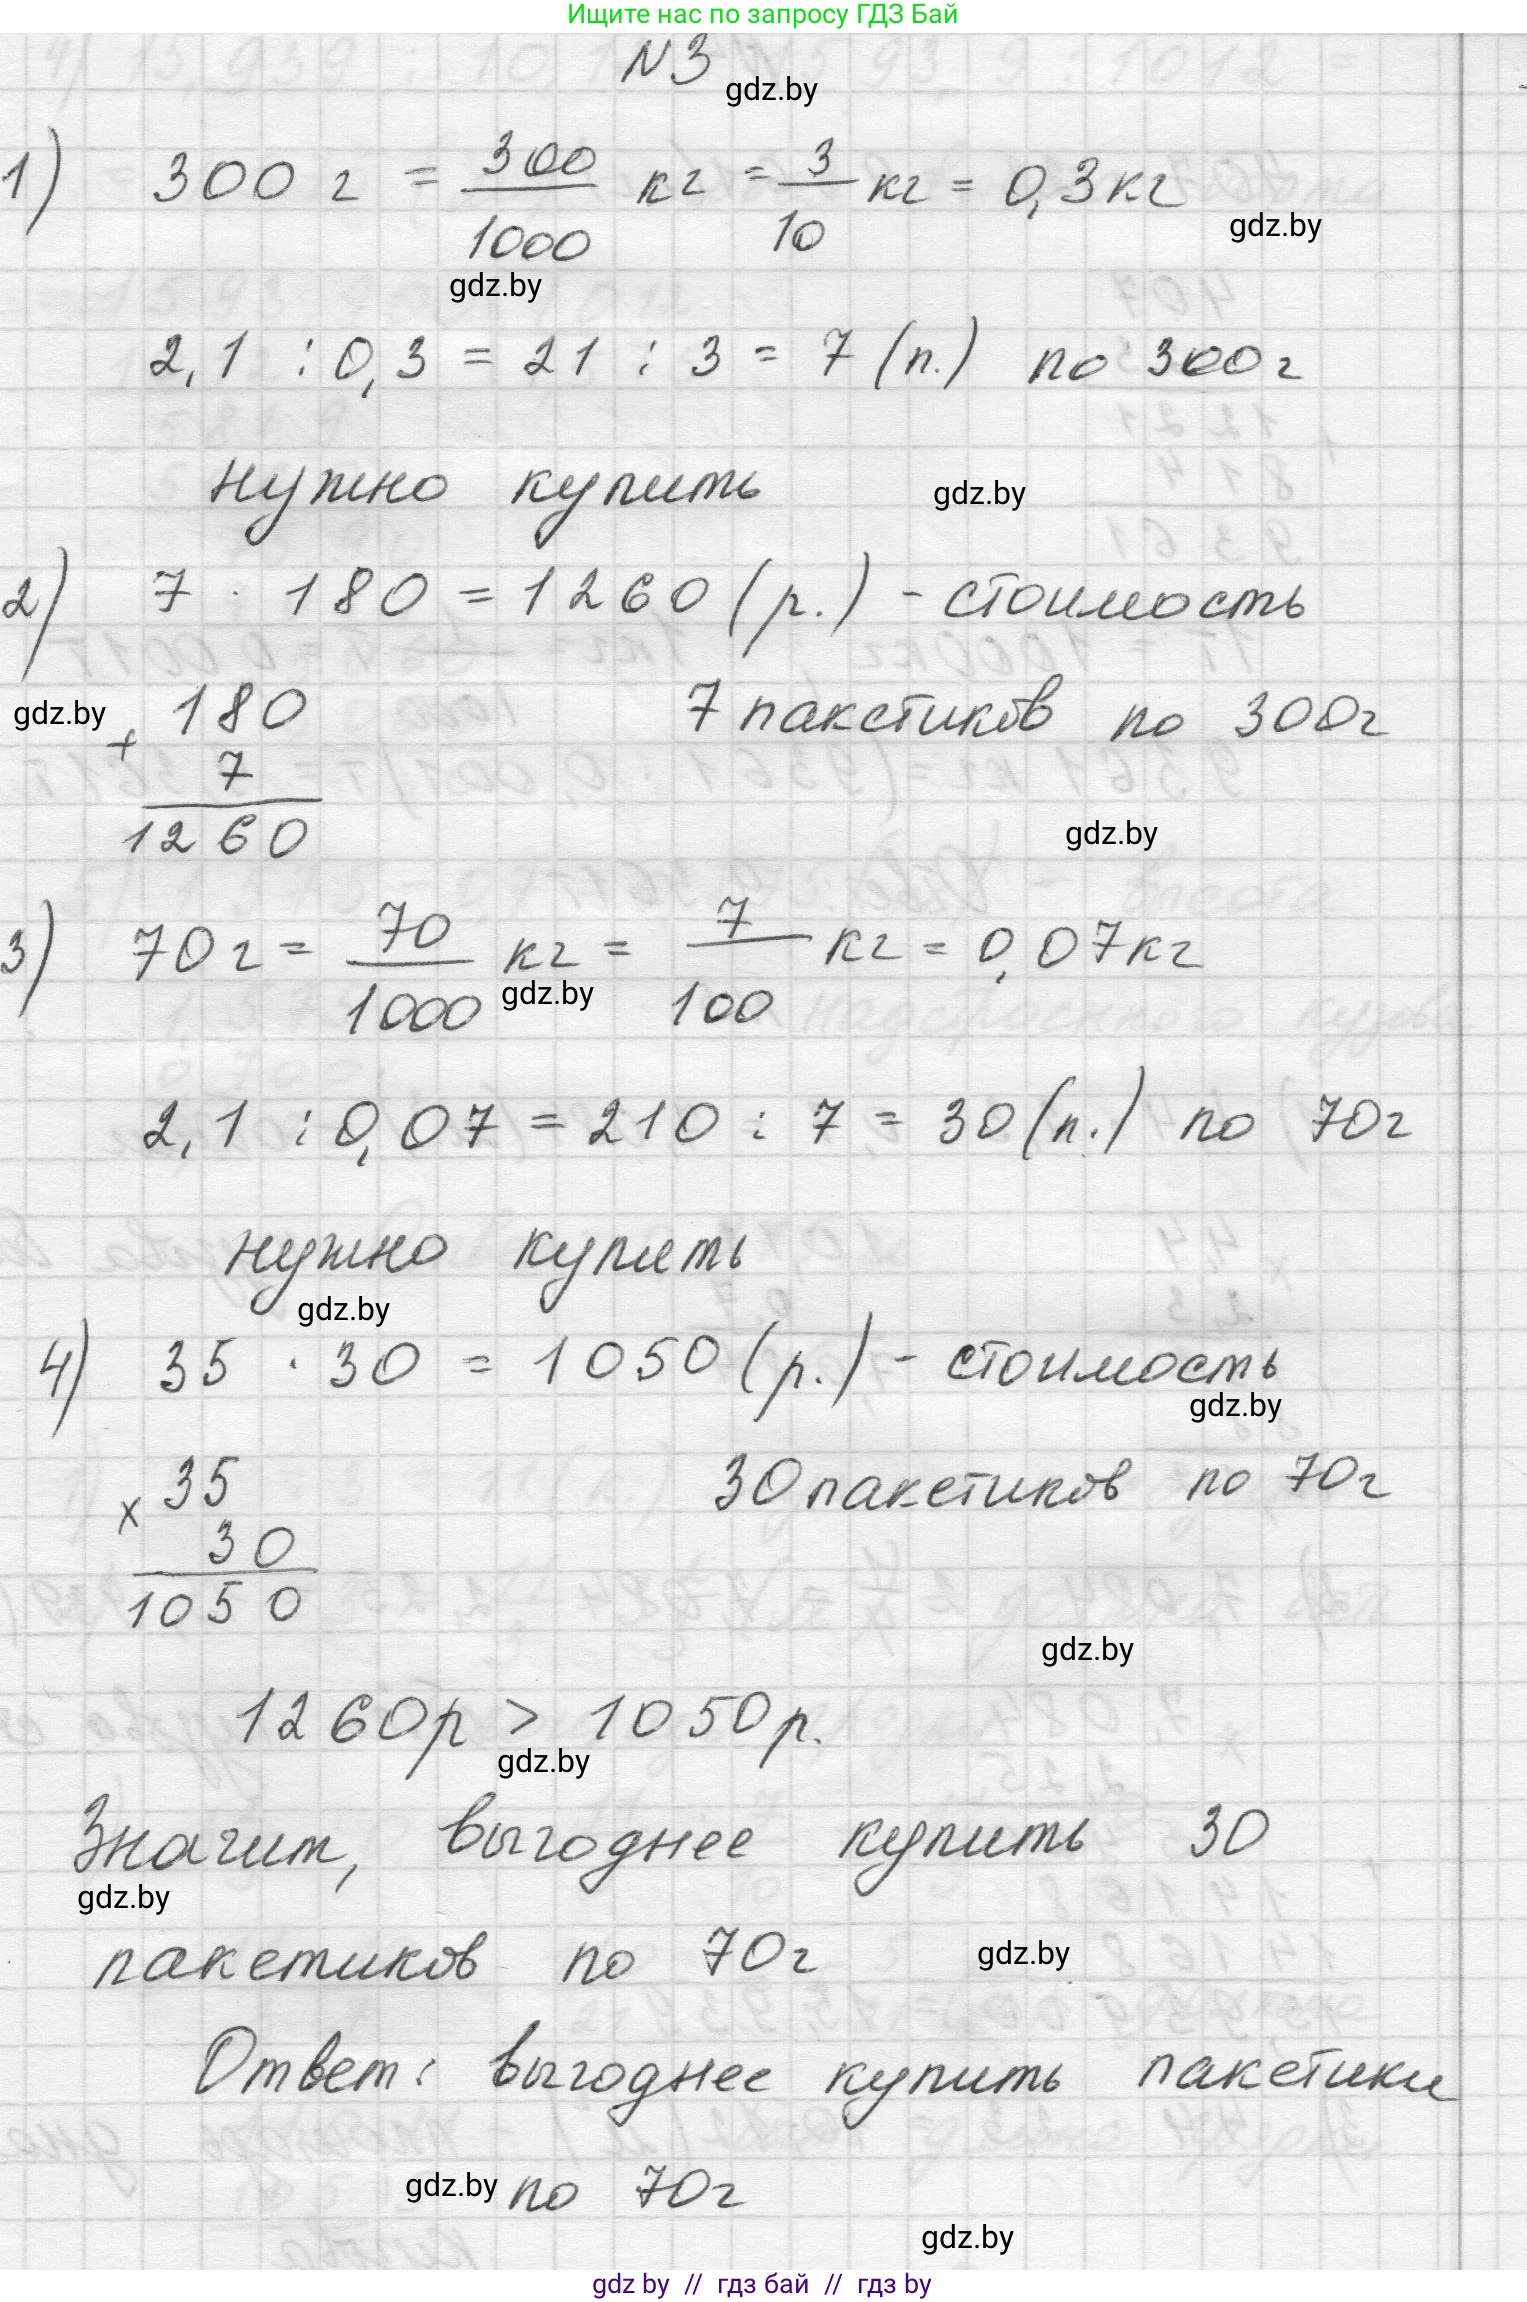 Ищите нас по запросу ГДЗ Бай
N3
gdz.by
1) 300 г = 300/1000 кг = 3/10 кг = 0,3 кг
gdz.by
gdz.by
2,1 : 0,3 = 21 : 3 = 7 (п.) по 300 г
нужно купить
gdz.by
2) 7 · 180 = 1260 (р.) - стоимость
7 пакетиков по 300 г
gdz.by
+ 180
7
1260
gdz.by
3) 70 г = 70/1000 кг = 7/100 кг = 0,07 кг
gdz.by
2,1 : 0,07 = 210 : 7 = 30 (п.) по 70 г
нужно купить
gdz.by
4) 35 · 30 = 1050 (р.) - стоимость
gdz.by
30 пакетиков по 70 г
x 35
30
1050
gdz.by
1260 р > 1050 р.
gdz.by
Значит, выгоднее купить 30
gdz.by
пакетиков по 70 г
gdz.by
Ответ: выгоднее купить пакетики
gdz.by
по 70 г
gdz.by
gdz by // гдз бай // гдз by